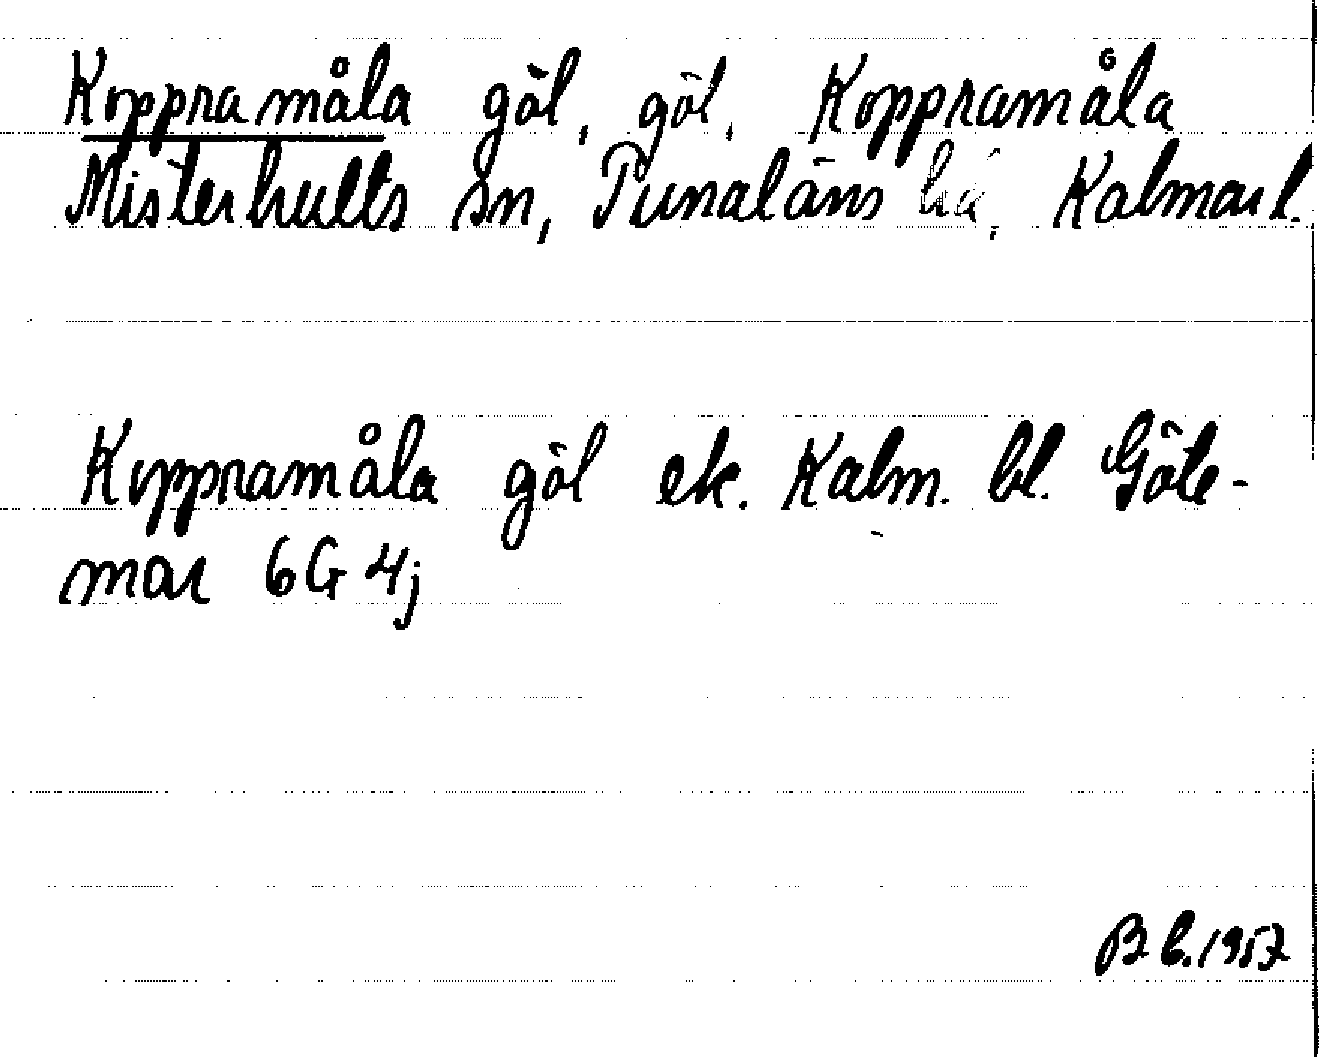 Koppramåla göl, göl, Koppramåla
Misterhults sn, Tunaläns hd, Kalmar l.
Koppramåla göl ek. Kalm. bl. Göte-
mar 6G 4j
B b. 1957